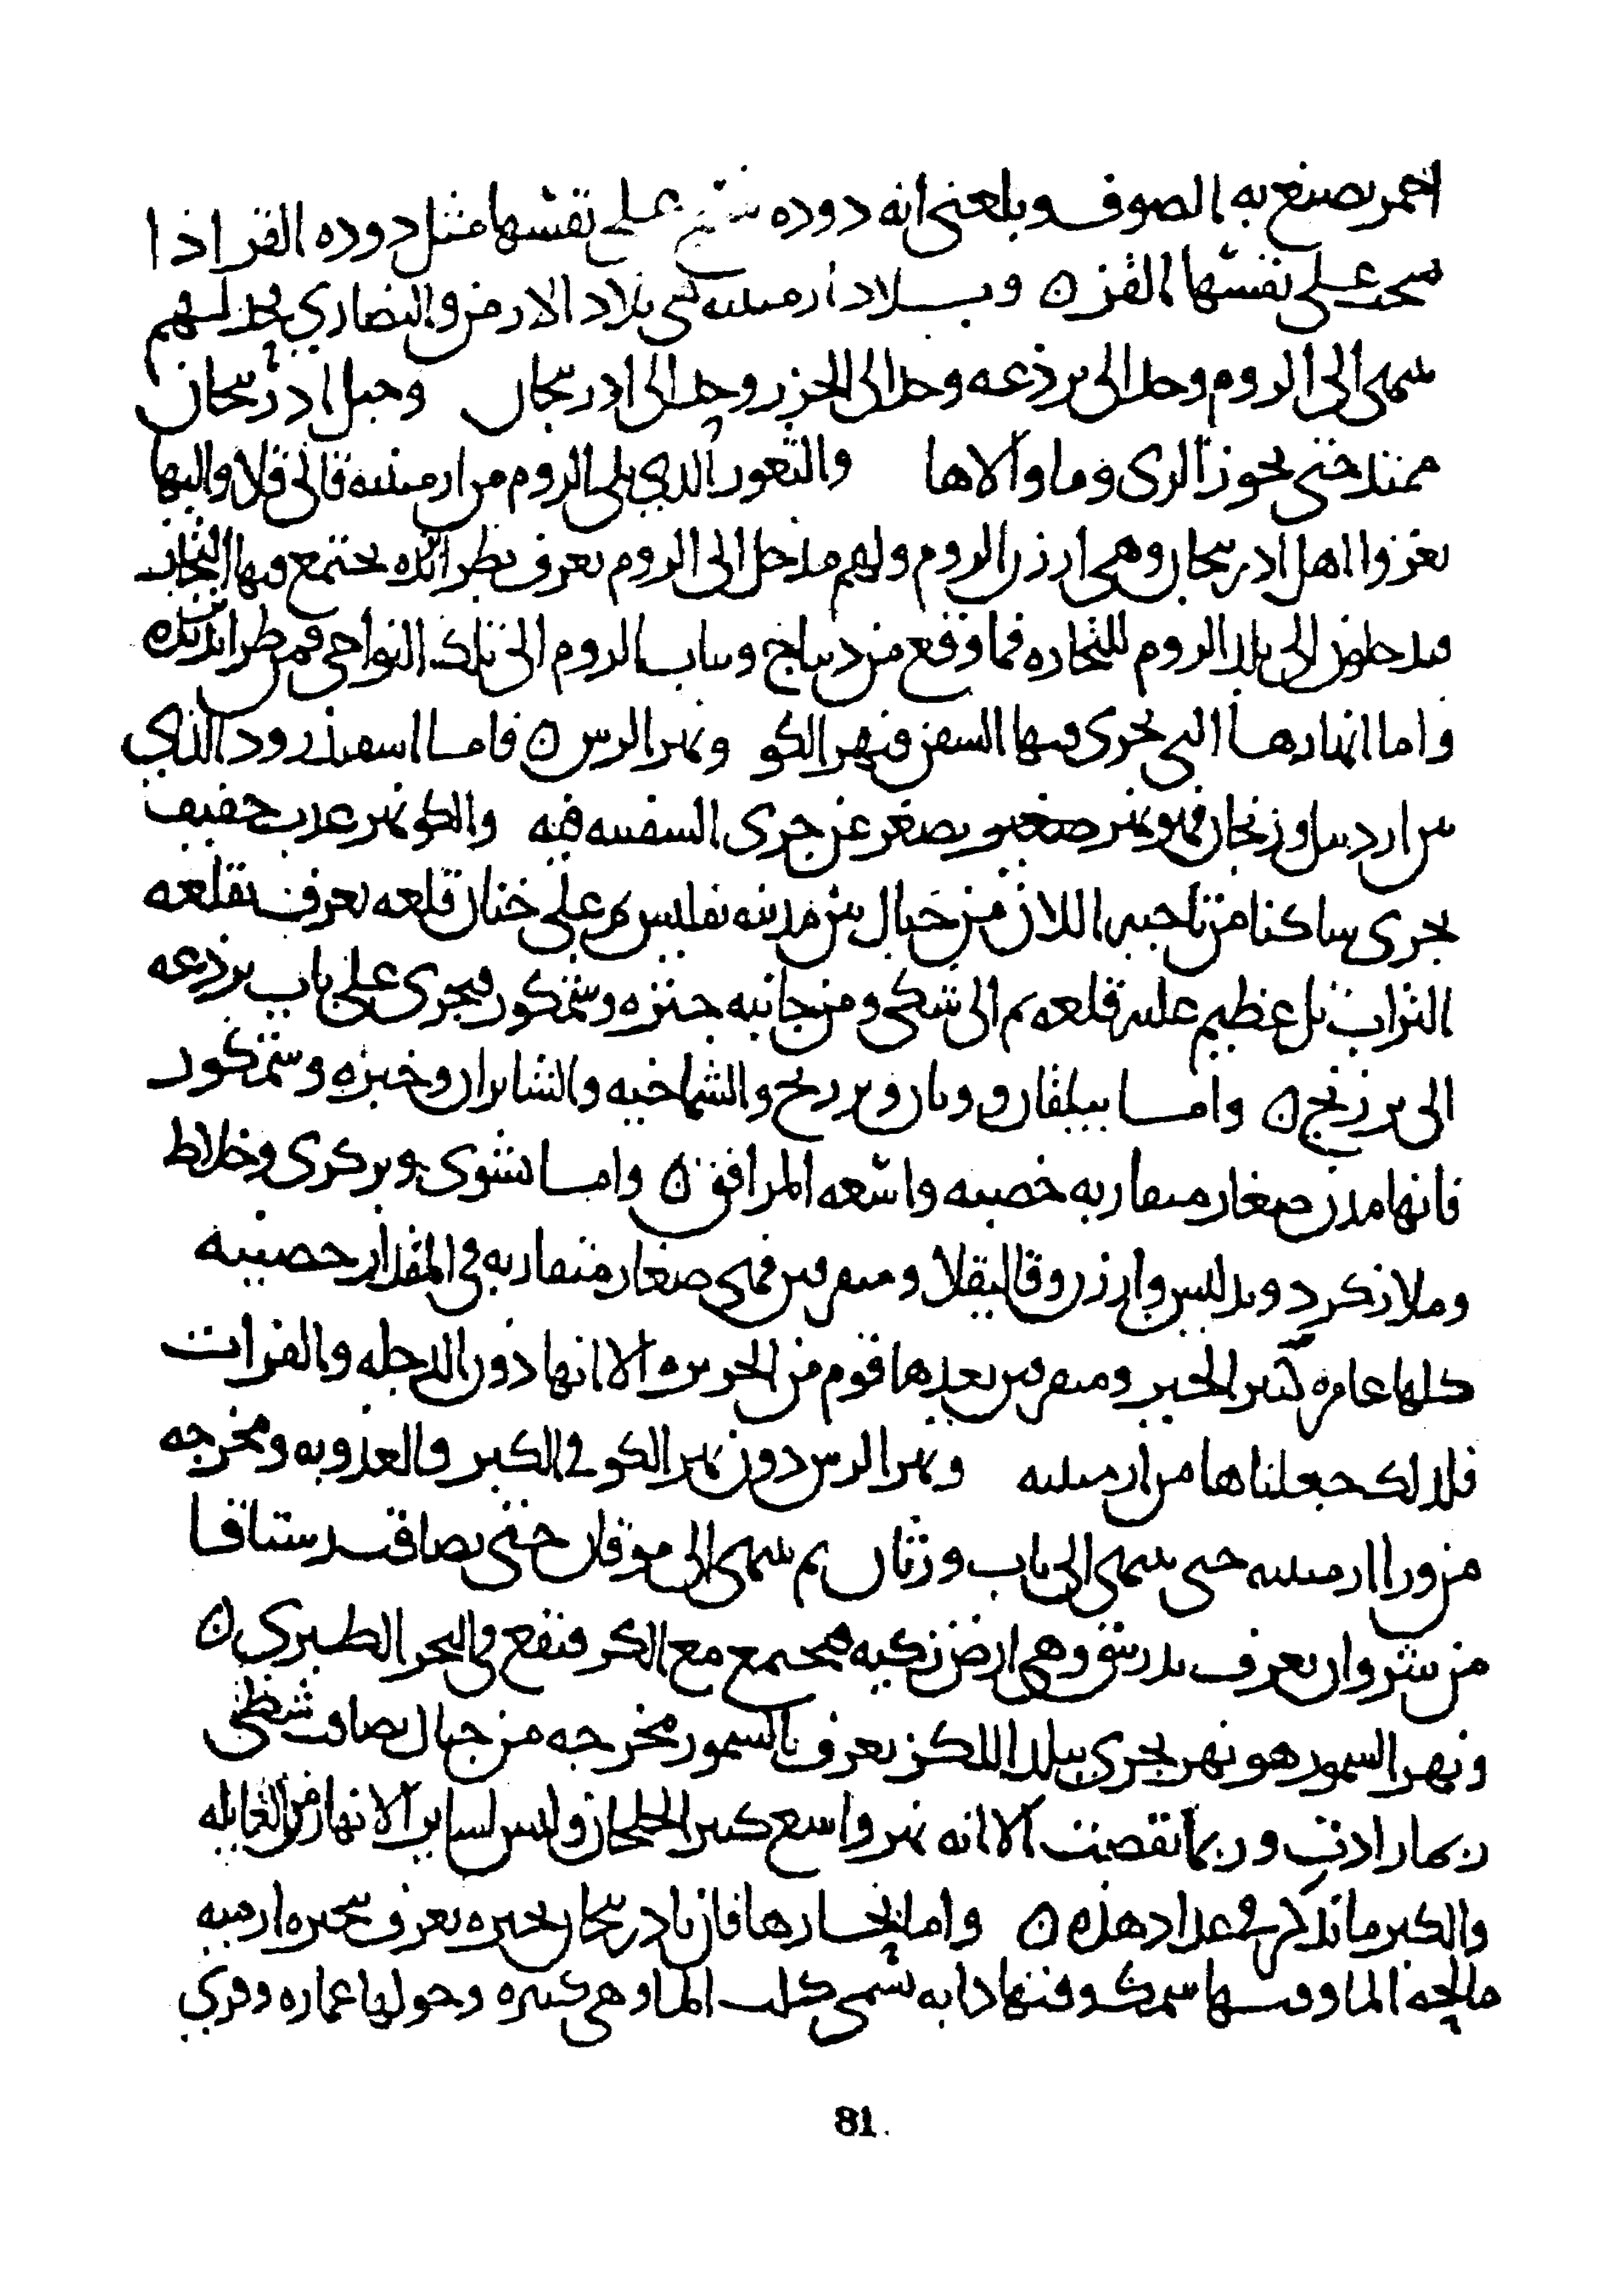 احمر يصبغ به الصوف وبلغني انه دوده تنسج على نفسها مثل دوده القز اذا
نسجت على نفسها القز ن وبلاد ارمينيه هي بلاد الارمن والنصاري بحد لهم
ينتهى الى الروم وحد الى برذعه وحد الى الخزر وحد الى ادربيجان وجبل ادربيجان
ممتد حتى يحوز الرى وما والاها والثغور الذي يلى الروم من ارمينيه قالي قلا واليها
يغزوا اهل ادربيجان وهى ارزن الروم ولهم مدخل الى الروم يعرف بطرابزنده يجتمع فيها التجار
فيدخلون الى بلد الروم للتجاره فما وقع من ديباج وثياب الروم الى تلك النواحي فمن طرابزنده
واما انهارها التى يجرى فيها السفن فنهر الكر ونهر الرس ن فاما اسفيذرود الذي
بين اردبيل وزنجان فهو نهر صغير يصغر عن جرى السفينه فيه والكر نهر عذب خفيف
يجرى ساكنا من ناحيه اللان من جبال بين مدينه تفليس ثم على خنان قلعه تعرف بقلعه
التراب تل عظيم عليه قلعه ثم الى شكى ومن جانبه جنزه وشمكور فيجرى على باب برذعه
الى برزنج ن واما بيلقان وورثان وبرديج والشماخيه والشابران وجنزه وشمكور
فانها مدن صغار متقاربه خصيبه واسعه المرافق ن واما نشوى وبركرى وخلاط
وملازكرد وبدليس وارزن وقاليقلا وميفرقين فهى صغار متقاربه في المقدار خصيبه
كلها عامره كثير الخير وميفرقين يعدها قوم من الجزيره الا انها دون الدجله والفرات
فلذلك جعلناها من ارمينيه ونهر الرس دون نهر الكر في الكبر والعذوبه ومخرجه
من ورا ارمينيه حتى ينتهى الى باب ورثان ثم ينتهى الى موقان حتى يصاقب رستاقا
من شروان يعرف وهى ارض زكيه فيجتمع مع الكر فيقع في البحر الطبري ن
ونهر السمور هو نهر يجري ببلد اللكز يعرف بالسمور مخرجه من جبال يصاقب
ربما زادت وربما نقصت الا انه نهر واسع كثير الخلجان وليس لساير الانهار من
والكبر ما نذكر في عداد هذه ن واما بحارها فان بادربيجان بحيره يعرف ببحيره ارميه
مالحه الما وفيها سمك وفيها دابه تسمى كلب الما وهي كبيره وحولها عماره وقري
81